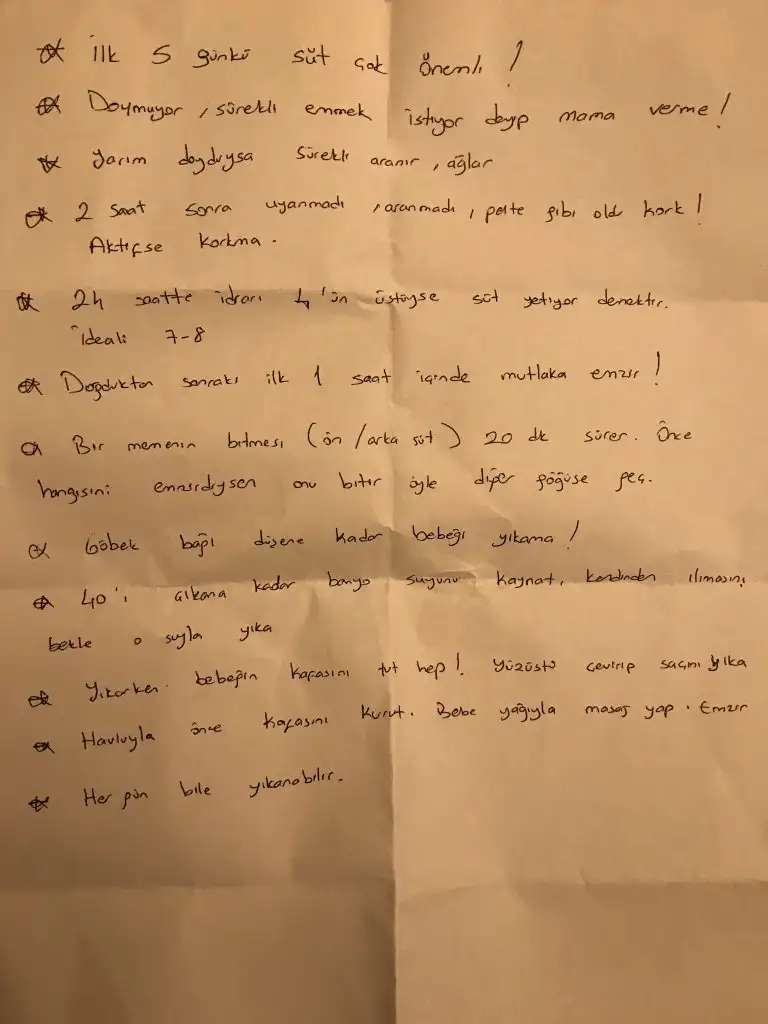 * İlk 5 günkü süt çok önemli!
* Doymuyor, sürekli emmek istiyor deyip mama verme!
* Yarım doyduysa sürekli aranır, ağlar
* 2 saat sonra uyanmadı, aranmadı, pelte gibi oldu kork!
Aktifse korkma.
* 24 saatte idrarı 4'ün üstüyse süt yetiyor demektir.
İdeali 7-8
* Doğduktan sonraki ilk 1 saat içinde mutlaka emzir!
* Bir memenin bitmesi (ön/arka süt) 20 dk sürer. Önce
hangisini emzirdiysen onu bitir öyle diğer göğüse geç.
* Göbek bağı düşene kadar bebeği yıkama!
* 40'ı çıkana kadar banyo suyunu kaynat, kendinden ılımasını
bekle o suyla yıka
* Yıkarken bebeğin kafasını tut hep! Yüzüstü çevirip saçını yıka
* Havluyla önce kafasını kurut. Bebe yağıyla masaj yap. Emzir
* Her gün bile yıkanabilir.